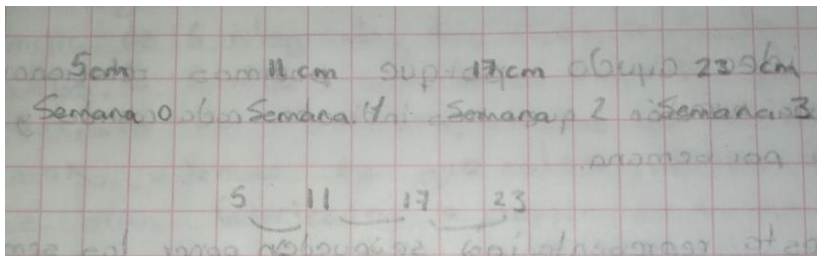 5cm 11 cm 17cm 23 cm
Semana 0 Semana 1 Semana 2 Semana 3
5 11 17 23